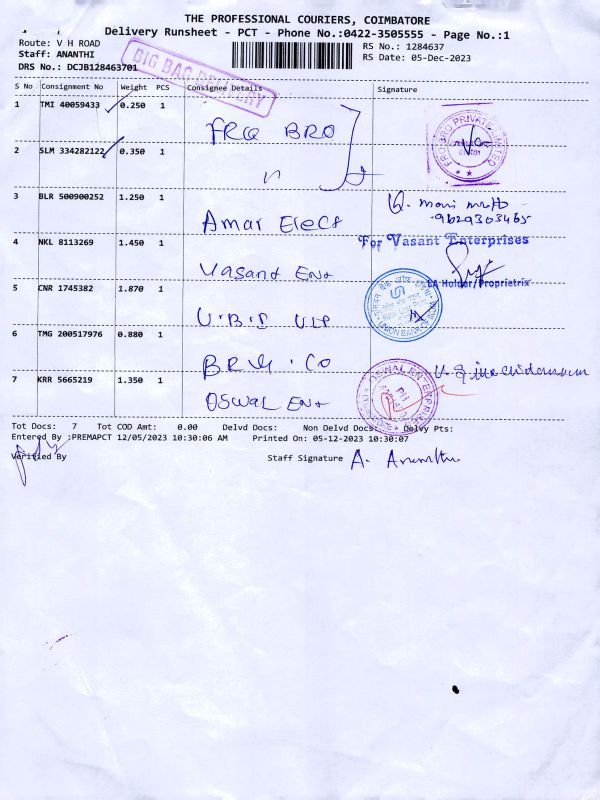 THE PROFESSIONAL COURIERS, COIMBATORE
Delivery Runsheet - PCT - Phone No.:0422-3505555 - Page No.:1
Route: V H ROAD
RS No.: 1284637
Staff: ANANTHI
RS Date: 05-Dec-2023
DRS No.: DCJB128463701
BIG BAG DELIVERY
S No Consignment No Weight PCS Consignee Details Signature
1 TMI 40059433 0.250 1 FRQ BRO
FRO BRO PRIVATE LIMITED
2 SLM 334282122 0.350 1 "
3 BLR 500900252 1.250 1 Amar Elecs
9629303465
4 NKL 8113269 1.450 1 Vasant Ent
For Vasant Enterprises
LA Holder/Proprietrix
5 CNR 1745382 1.870 1 U.B.I ULP
UNION BANK OF
6 TMG 200517976 0.880 1 BRM. CO
7 KRR 5665219 1.350 1 OSWAL Ent
OSWAL ENTERPRISE
Tot Docs: 7 Tot COD Amt: 0.00 Delvd Docs: Non Delvd Docs: Delvy Pts:
Entered By :PREMAPCT 12/05/2023 10:30:06 AM Printed On: 05-12-2023 10:30:07
Verified By Staff Signature A. Ananthi